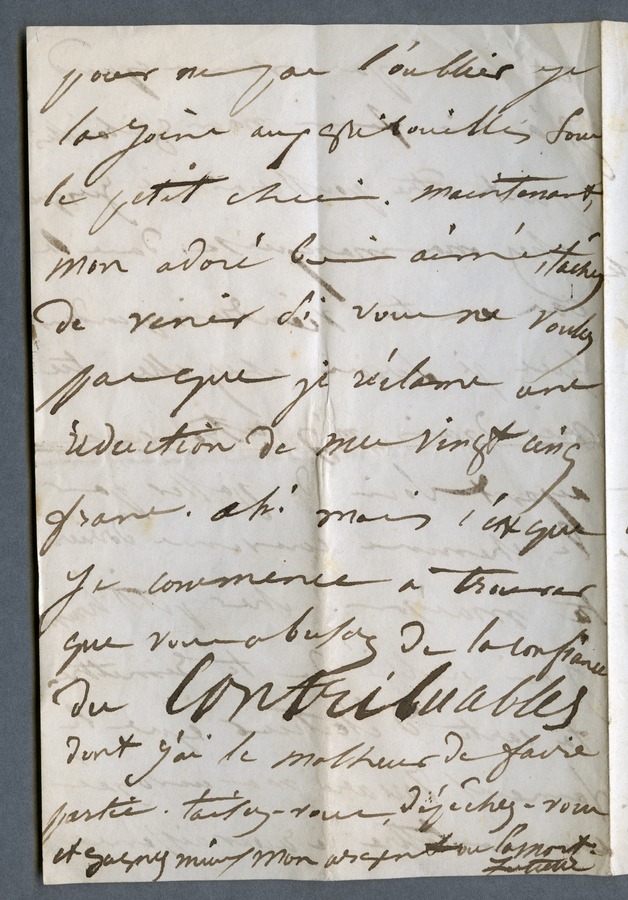 pour ne pas l'oublier je
la joins aux gribouillis sous
le petit chien. maintenant,
mon adoré bien aimé, tachez
de venir si vous ne voulez
pas que je réclame une
réduction de mes vingt cinq
francs. ah! mais c'est que
je commence a trouver
que vous abusez de la confiance
des Contribuables
dont j'ai le malheur de faire
partie. taisez-vous, dépêchez-vous
et gagnez mieux mon argent ou la mort.